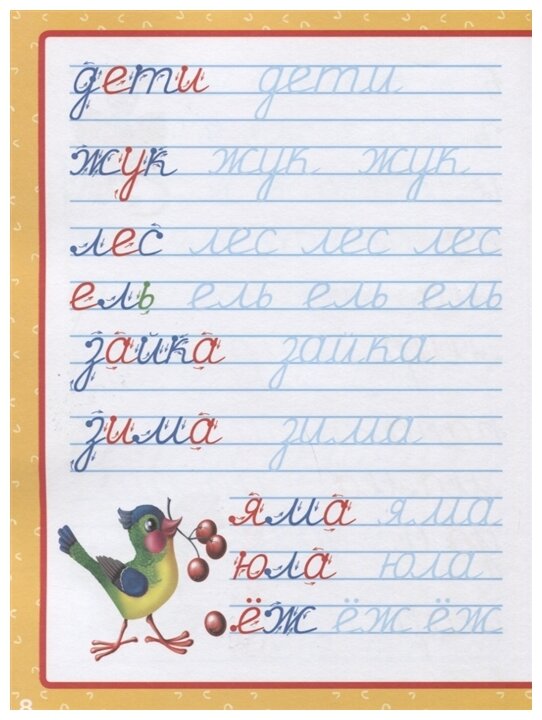 дети дети
жук жук жук
лес лес лес лес
ель ель ель ель
зайка зайка
зима зима
яма яма
юла юла
ёж ёж ёж
8